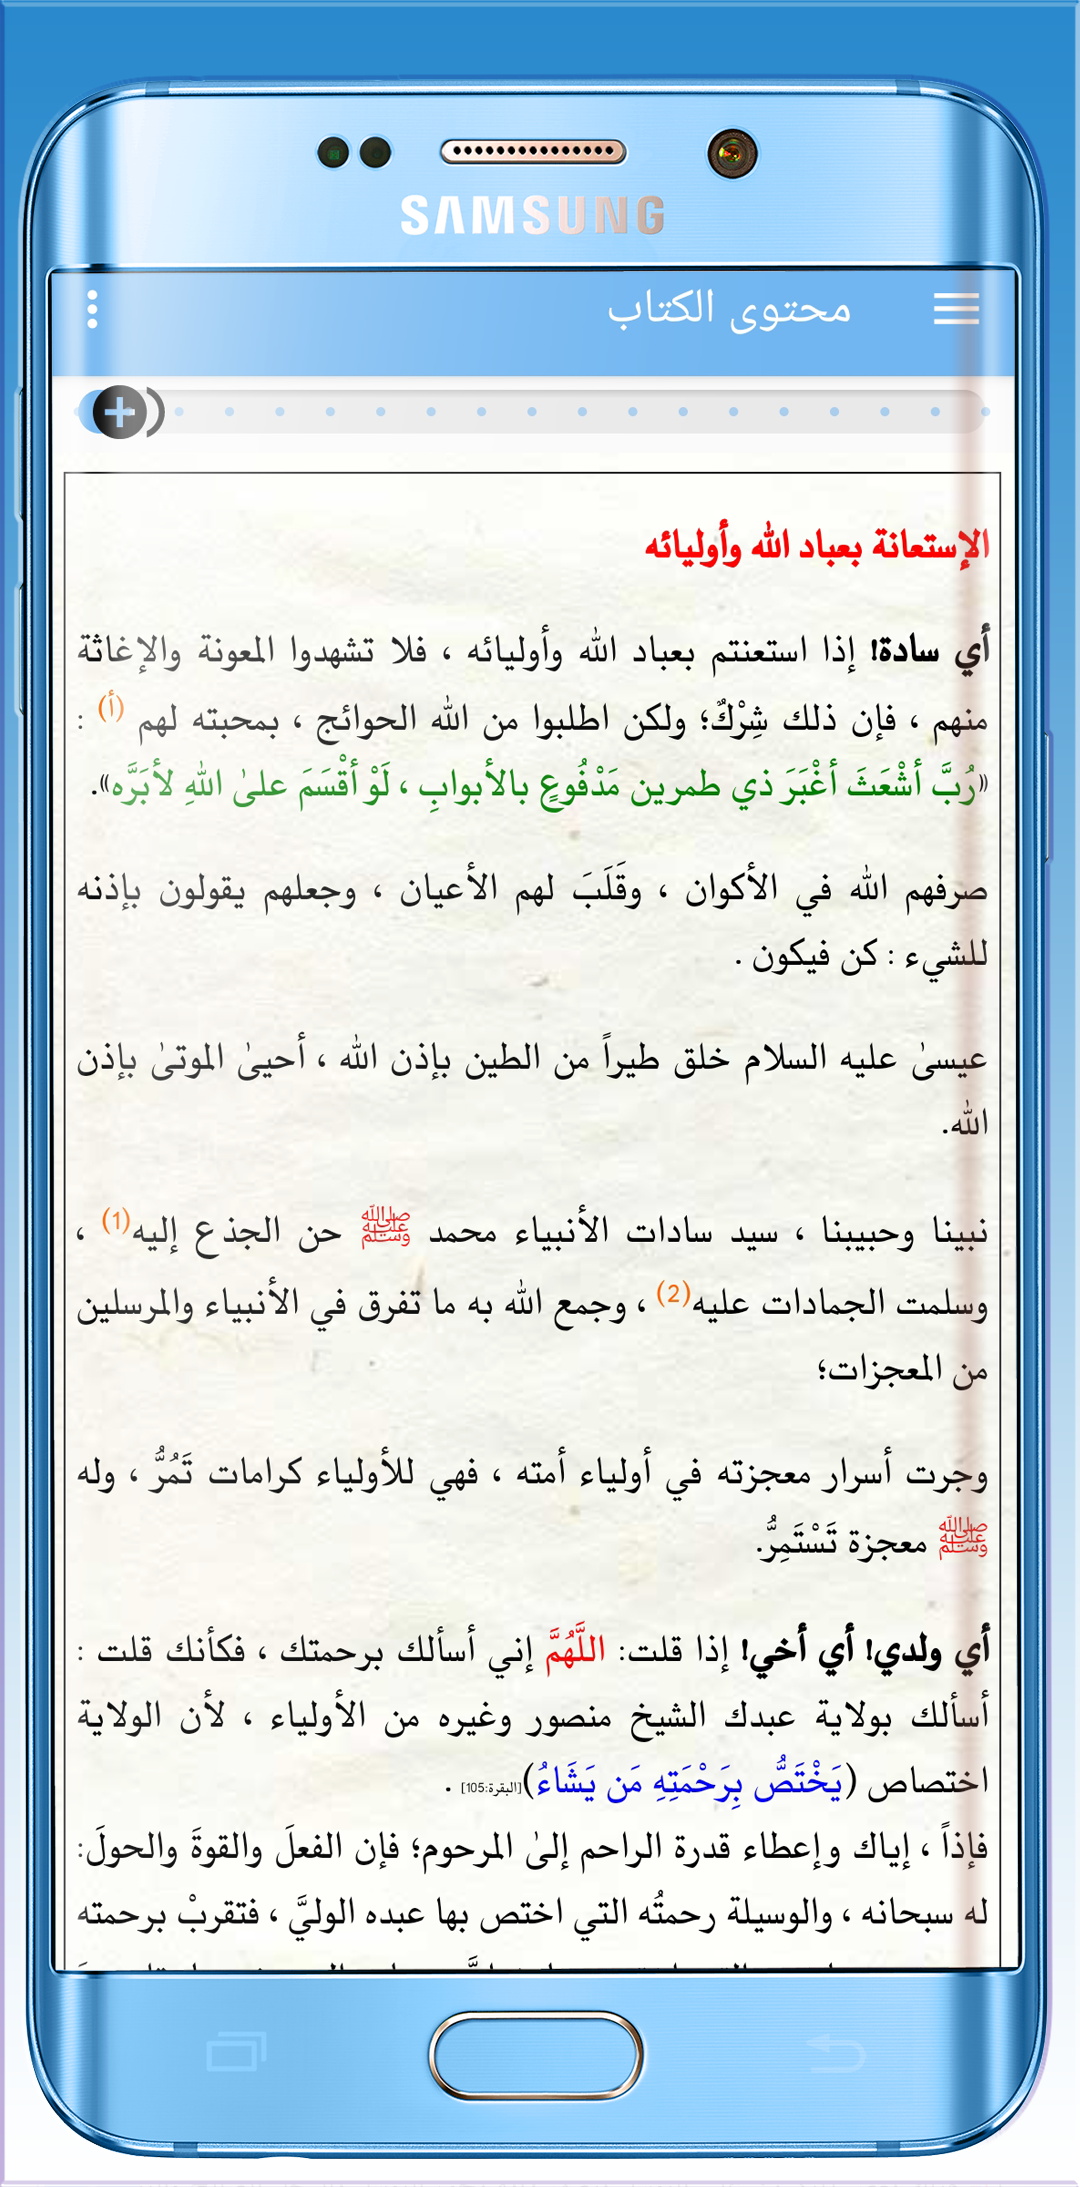 SAMSUNG
محتوى الكتاب
الإستعانة بعباد الله وأوليائه
أي سادة! إذا استعنتم بعباد الله وأوليائه ، فلا تشهدوا المعونة والإغاثة
منهم ، فإن ذلك شِرْكٌ؛ ولكن اطلبوا من الله الحوائج ، بمحبته لهم (أ) :
«رُبَّ أَشْعَثَ أغْبَرَ ذي طمرين مَدْفُوعٍ بالأبوابِ ، لَوْ أقْسَمَ علىٰ اللهِ لأبَرَّه».
صرفهم الله في الأكوان ، وقَلَبَ لهم الأعيان ، وجعلهم يقولون بإذنه
للشيء : كن فيكون .
عيسىٰ عليه السلام خلق طيراً من الطين بإذن الله ، أحيىٰ الموتىٰ بإذن
الله.
نبينا وحبيبنا ، سيد سادات الأنبياء محمد ﷺ حن الجذع إليه(1) ،
وسلمت الجمادات عليه(2) ، وجمع الله به ما تفرق في الأنبياء والمرسلين
من المعجزات؛
وجرت أسرار معجزته في أولياء أمته ، فهي للأولياء كرامات تَمُرُّ ، وله
ﷺ معجزة تَسْتَمِرُّ.
أي ولدي! أي أخي! إذا قلت: اللَّهُمَّ إني أسألك برحمتك ، فكأنك قلت :
أسألك بولاية عبدك الشيخ منصور وغيره من الأولياء ، لأن الولاية
اختصاص (يَخْتَصُّ بِرَحْمَتِهِ مَن يَشَاءُ)[البقرة:105] .
فإذاً ، إياك وإعطاء قدرة الراحم إلىٰ المرحوم؛ فإن الفعلَ والقوةَ والحولَ:
له سبحانه ، والوسيلة رحمتُه التي اختص بها عبده الوليَّ ، فتقربْ برحمته